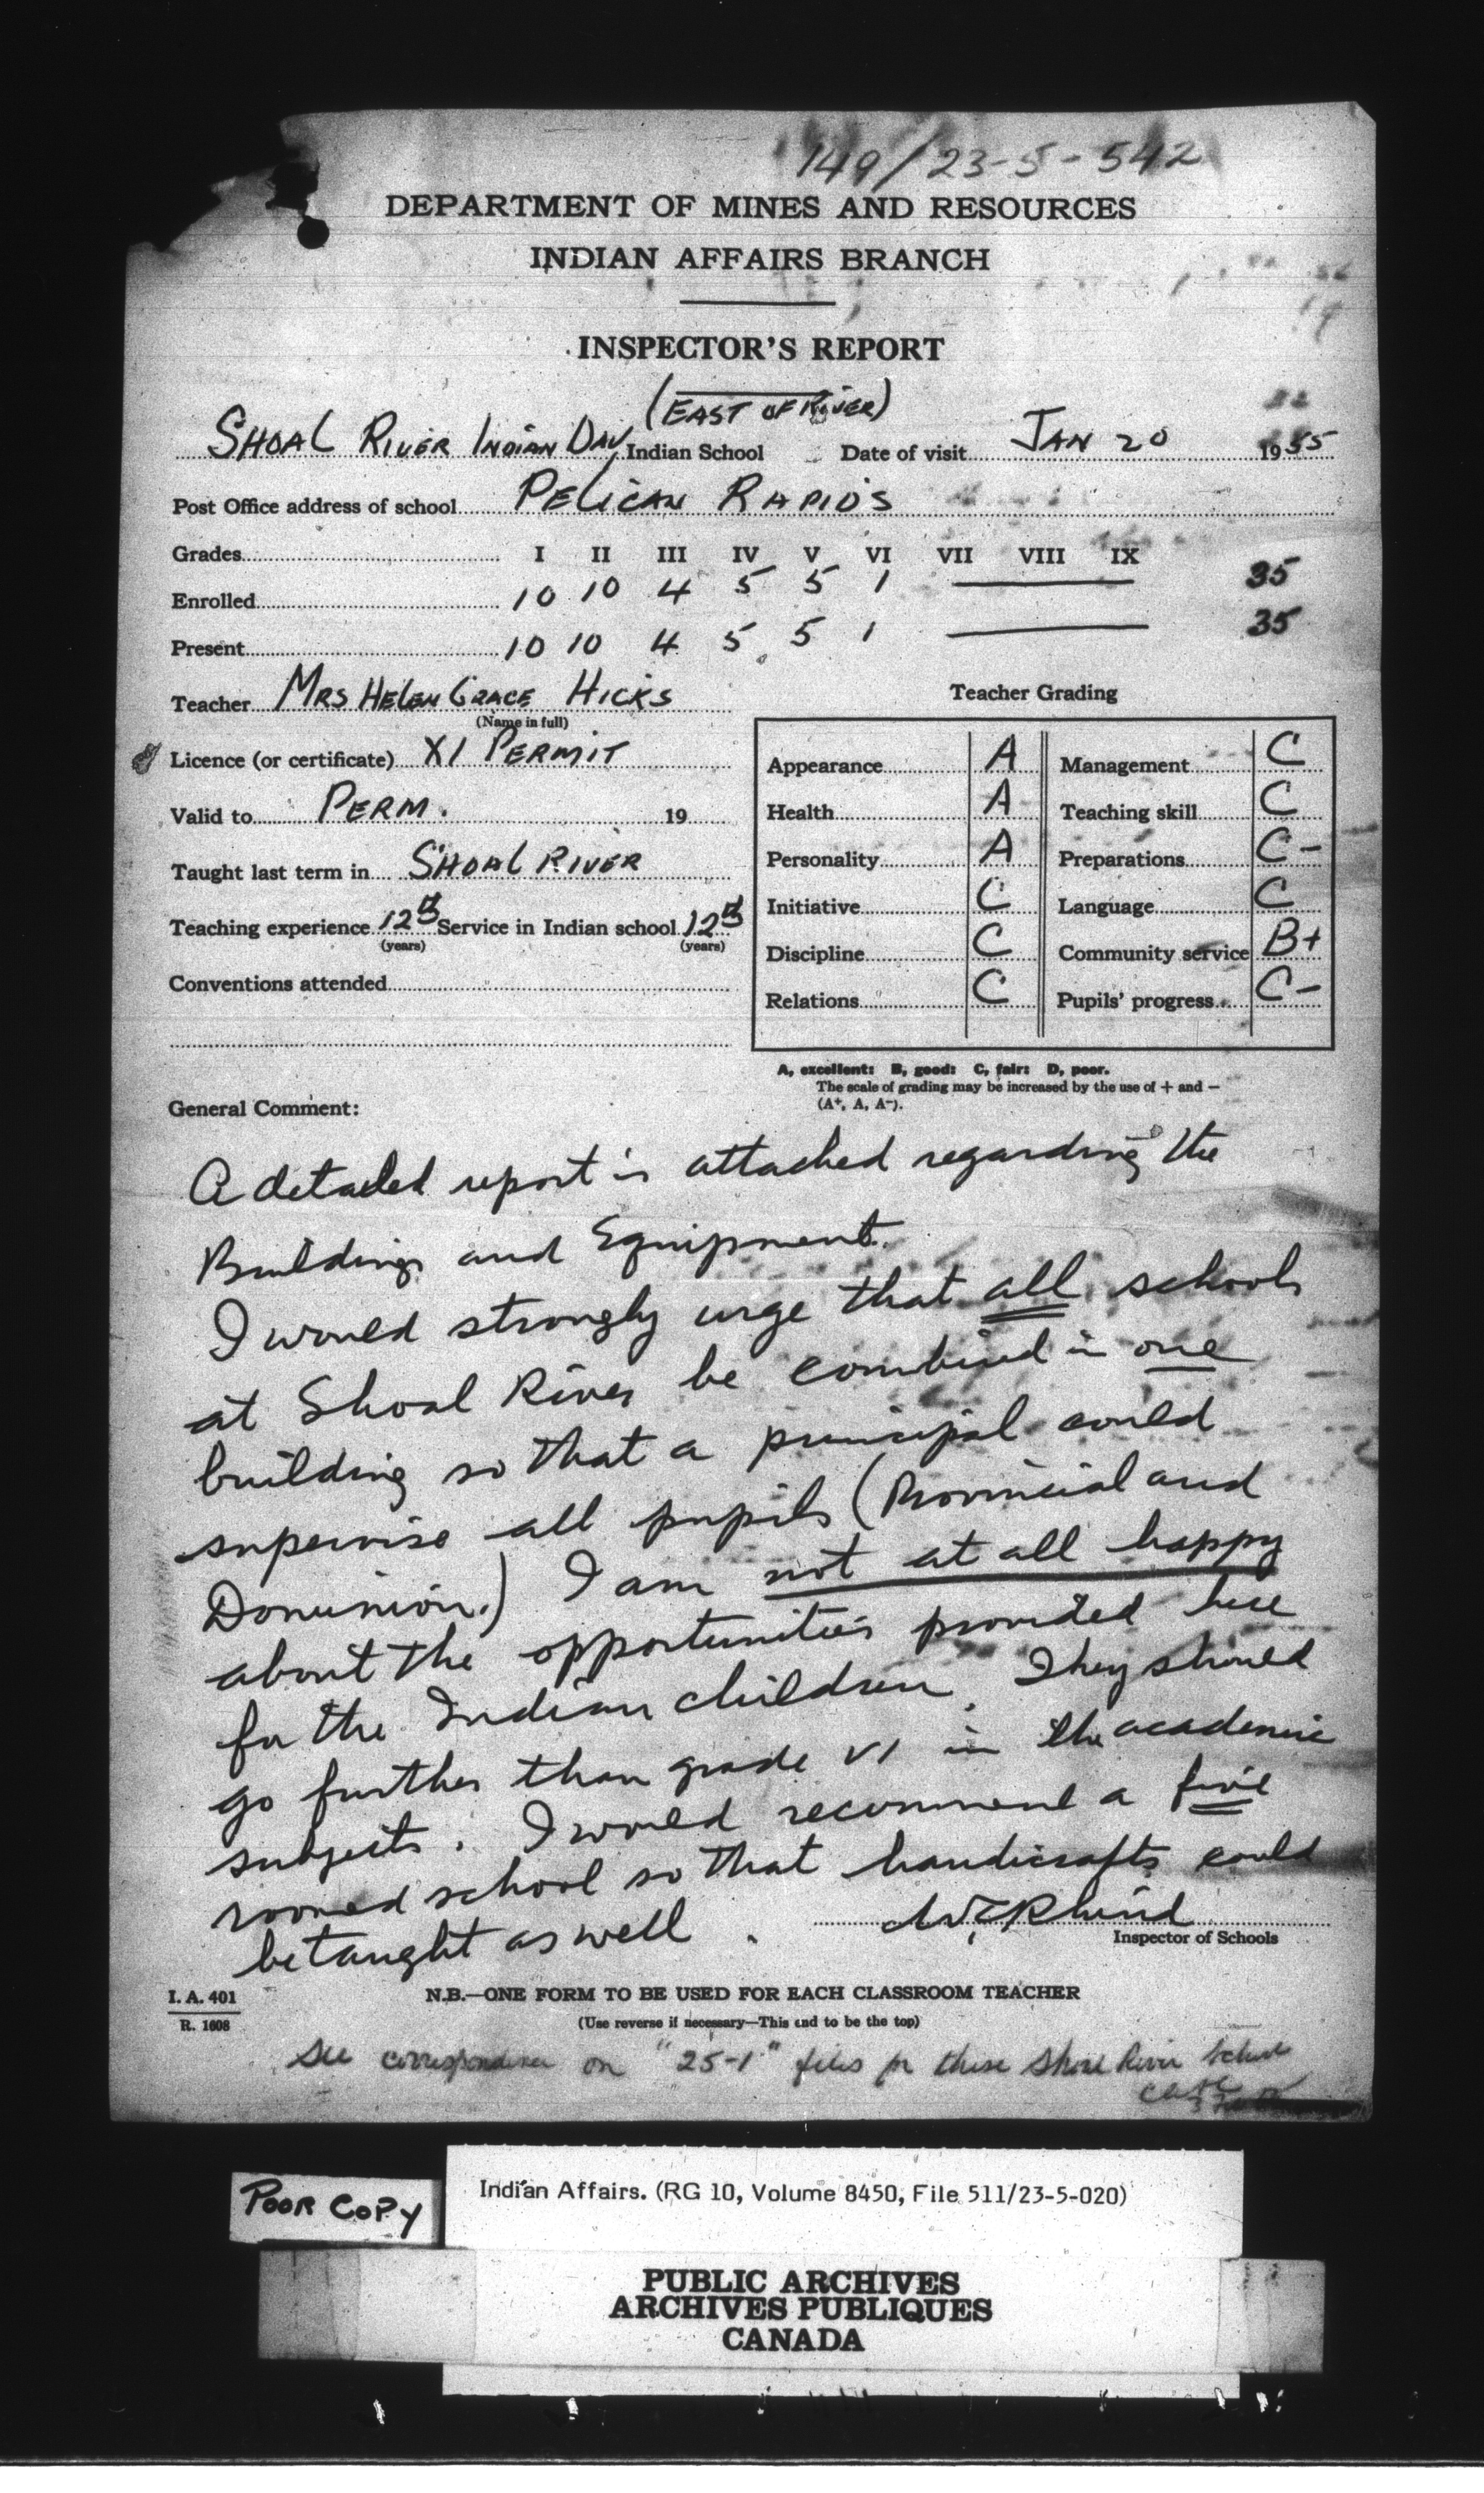 149/23-5-542
DEPARTMENT OF MINES AND RESOURCES
INDIAN AFFAIRS BRANCH
INSPECTOR'S REPORT
(EAST OF RIVER)
SHOAL RIVER INDIAN DAY Indian School Date of visit JAN 20 1955
Post Office address of school PELICAN RAPIDS
Grades I II III IV V VI VII VIII IX
Enrolled 10 10 4 5 5 1 35
Present 10 10 4 5 5 1 35
Teacher MRS HELEN GRACE HICKS
(Name in full)
Licence (or certificate) XI PERMIT
Valid to PERM. 19
Taught last term in SHOAL RIVER
Teaching experience 12 Service in Indian school 12
(years) (years)
Conventions attended
Teacher Grading
Appearance A Management C
Health A Teaching skill C
Personality A Preparations C-
Initiative C Language C
Discipline C Community service B+
Relations C Pupils' progress C-
A, excellent: B, good: C, fair: D, poor.
The scale of grading may be increased by the use of + and −
(A+, A, A-).
General Comment:
A detailed report is attached regarding the
Buildings and Equipment.
I would strongly urge that all schools
at Shoal River be combined in one
building so that a principal could
supervise all pupils (Provincial and
Dominion.) I am not at all happy
about the opportunities provided here
for the Indian children. They should
go further than grade VI in the academic
subjects. I would recommend a five
roomed school so that handicrafts could
be taught as well.
Inspector of Schools
I. A. 401
R. 1608
N.B.—ONE FORM TO BE USED FOR EACH CLASSROOM TEACHER
(Use reverse if necessary—This end to be the top)
See correspondence on "25-1" files for these Shoal River
POOR COPY
Indian Affairs. (RG 10, Volume 8450, File 511/23-5-020)
PUBLIC ARCHIVES
ARCHIVES PUBLIQUES
CANADA